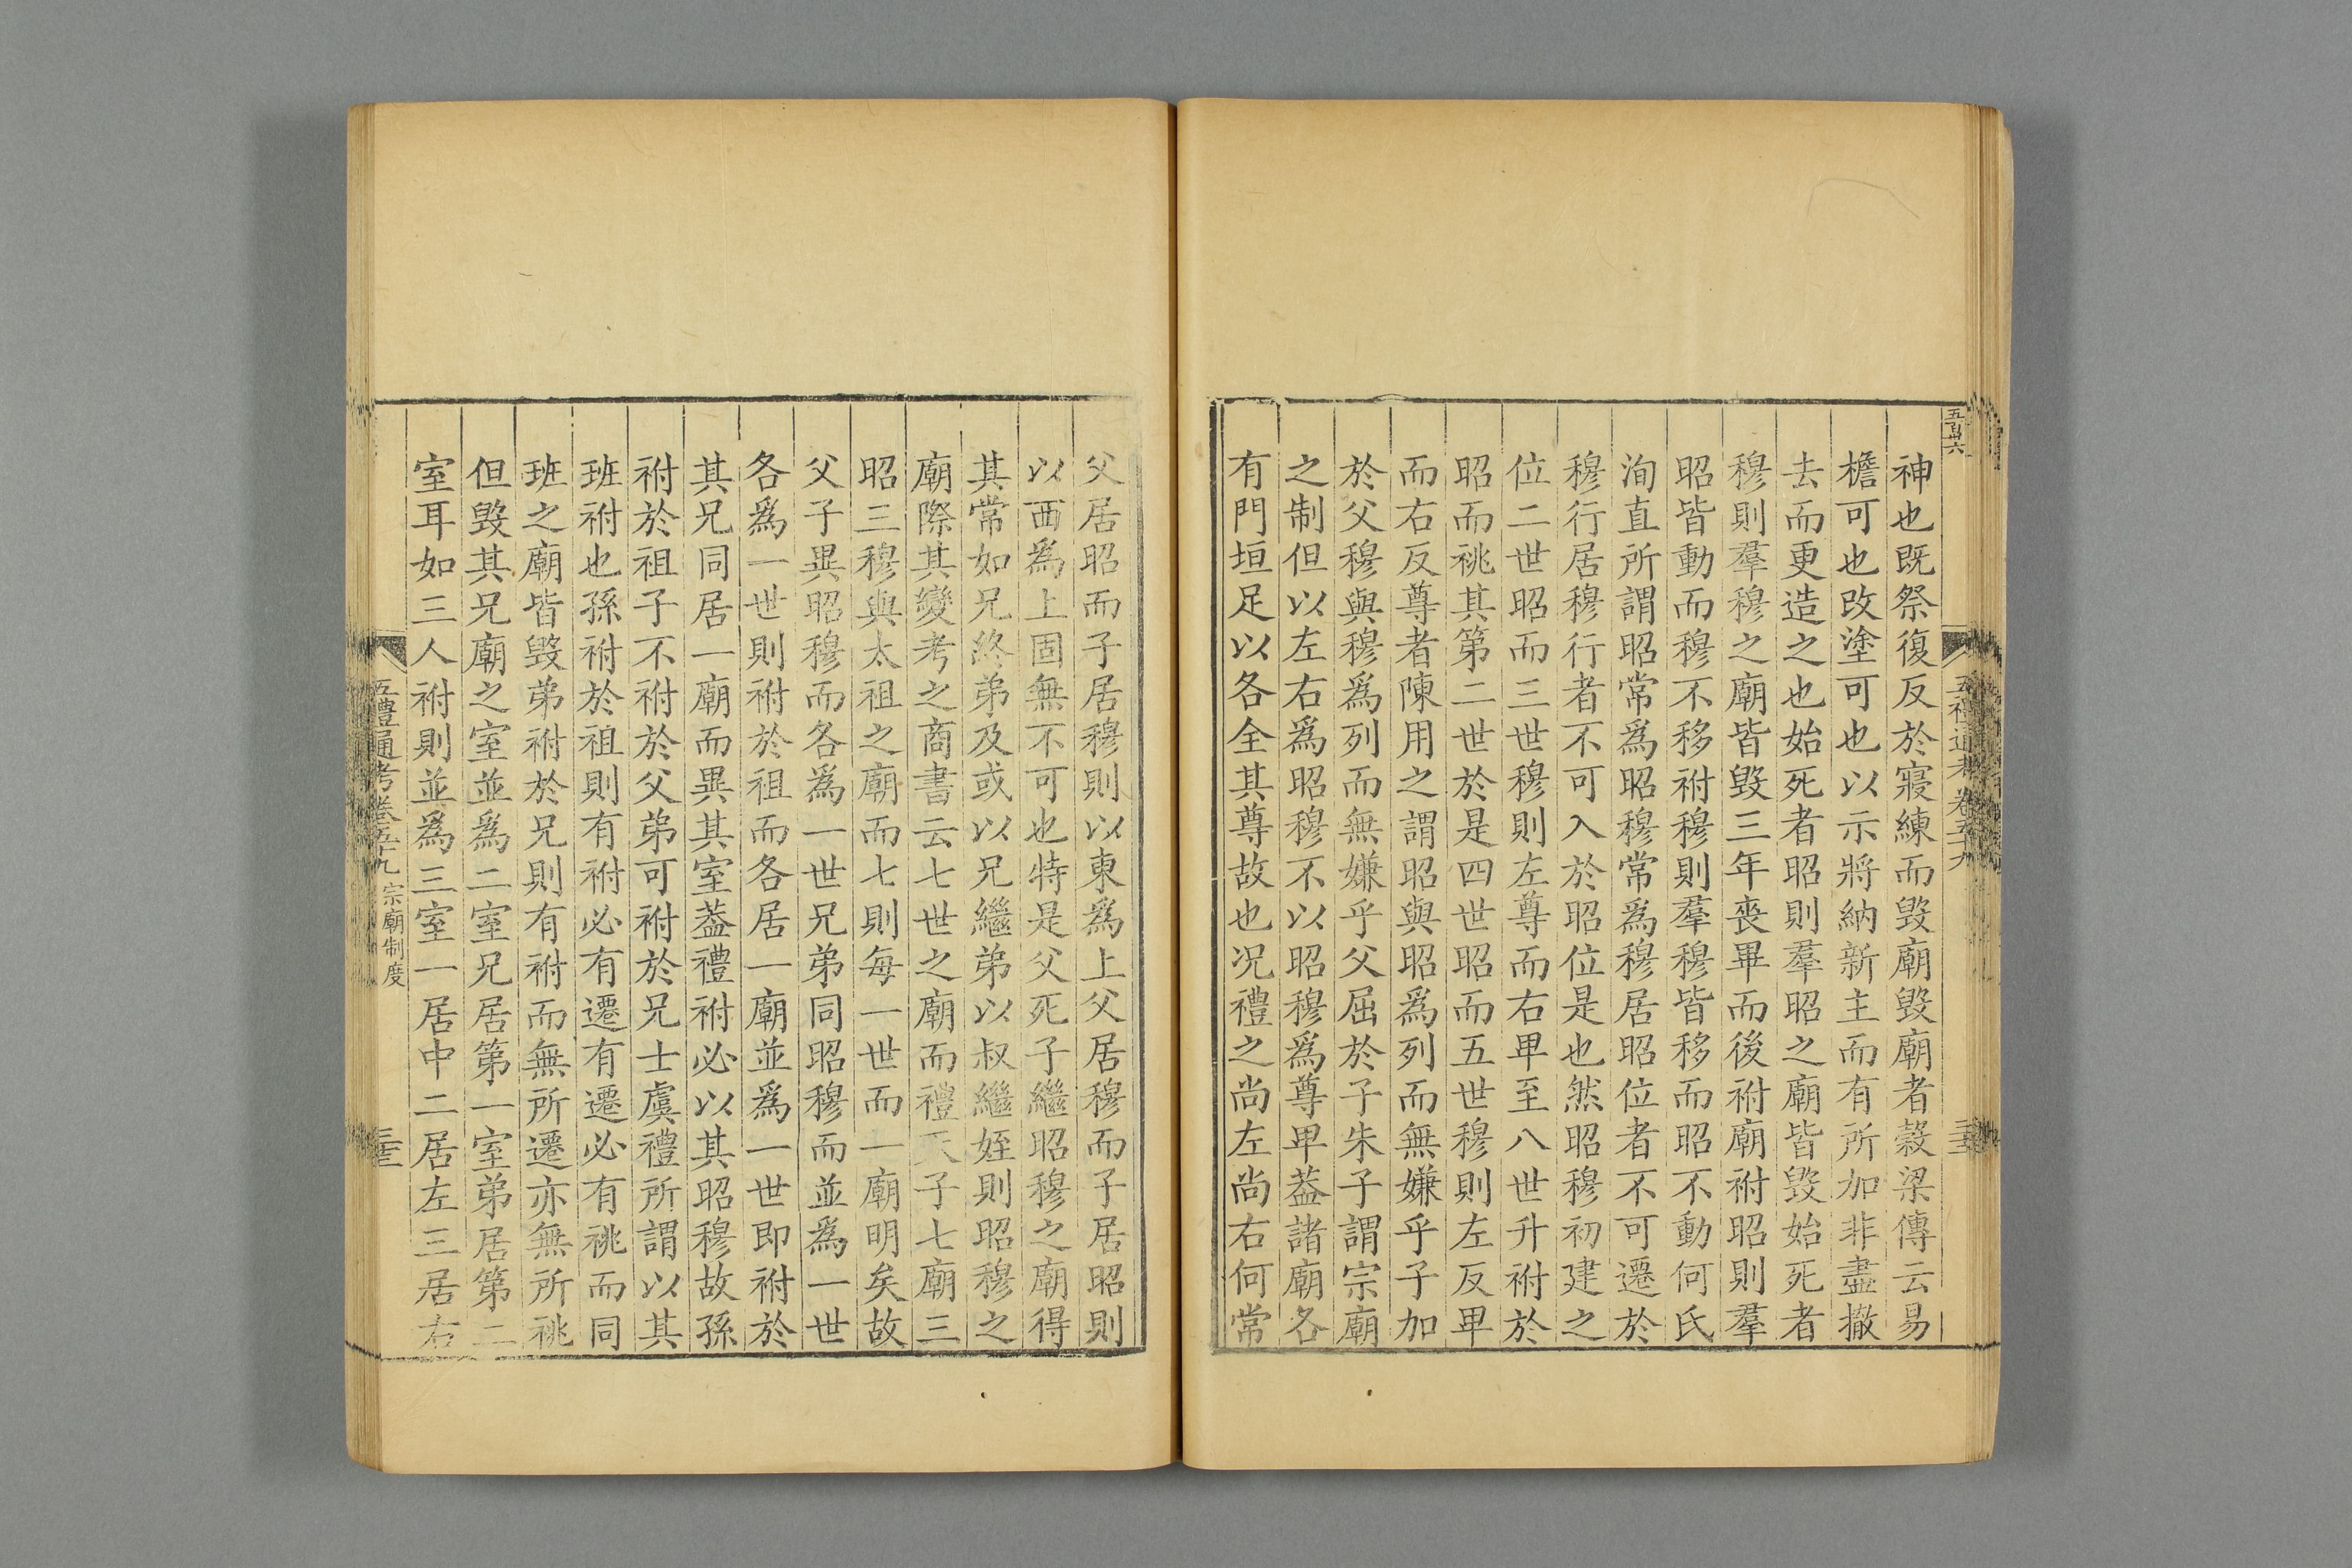 五百六
五禮通考卷五十九
三十三
神也既祭復反於寢練而毀廟毀廟者穀梁傳云易
檐可也改塗可也以示將納新主而有所加非盡撤
去而更造之也始死者昭則羣昭之廟皆毀始死者
穆則羣穆之廟皆毀三年喪畢而後祔廟祔昭則羣
昭皆動而穆不移祔穆則羣穆皆移而昭不動何氏
洵直所謂昭常爲昭穆常爲穆居昭位者不可遷於
穆行居穆行者不可入於昭位是也然昭穆初建之
位二世昭而三世穆則左尊而右卑至八世升祔於
昭而祧其第二世於是四世昭而五世穆則左反卑
而右反尊者陳用之謂昭與昭爲列而無嫌乎子加
於父穆與穆爲列而無嫌乎父屈於子朱子謂宗廟
之制但以左右爲昭穆不以昭穆爲尊卑葢諸廟各
有門垣足以各全其尊故也况禮之尚左尚右何常
父居昭而子居穆則以東爲上父居穆而子居昭則
以西爲上固無不可也特是父死子繼昭穆之廟得
其常如兄終弟及或以兄繼弟以叔繼姪則昭穆之
廟際其變考之商書云七世之廟而禮天子七廟三
昭三穆與太祖之廟而七則每一世而一廟明矣故
父子異昭穆而各爲一世兄弟同昭穆而並爲一世
各爲一世則祔於祖而各居一廟並爲一世即祔於
其兄同居一廟而異其室葢禮祔必以其昭穆故孫
祔於祖子不祔於父弟可祔於兄士虞禮所謂以其
班祔也孫祔於祖則有祔必有遷有遷必有祧而同
班之廟皆毀弟祔於兄則有祔而無所遷亦無所祧
但毀其兄廟之室並爲二室兄居第一室弟居第二
室耳如三人祔則並爲三室一居中二居左三居右
五禮通考卷五十九 宗廟制度
三十三